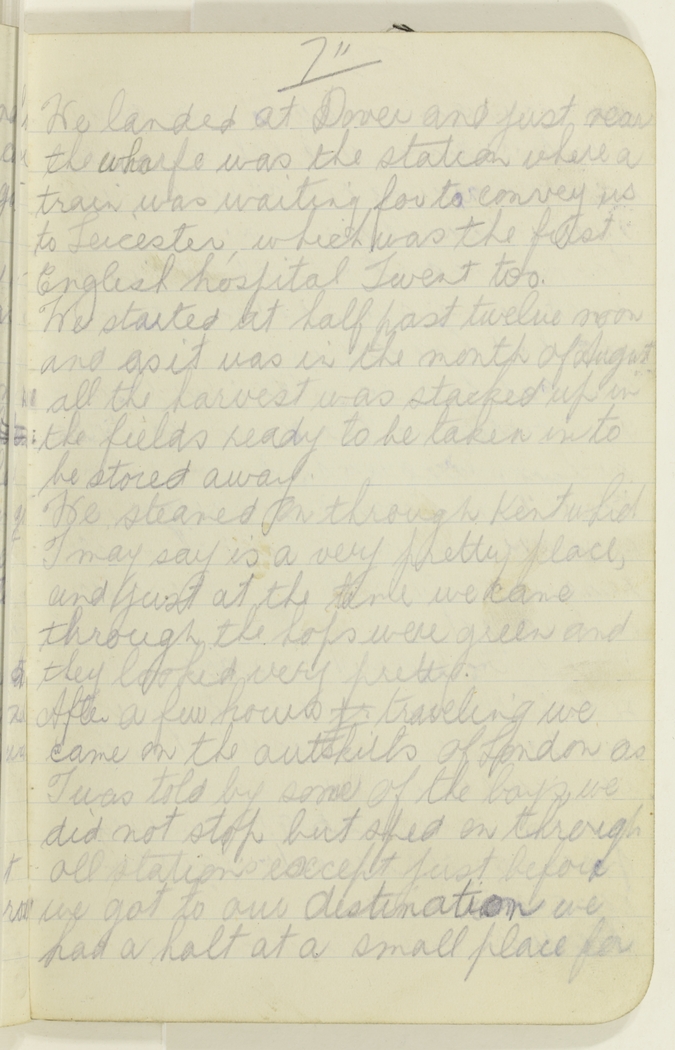 7"
We landed at Dover and just near
the wharfe was the station where a
train was waiting for to convey us
to Leicester, which was the first
English hospital I went too.
We started at half past twelve noon
and as it was in the month of August
all the harvest was stacked up in
the fields ready to be taken in to
be stored away.
We steamed on through Kent whid
I may say is a very pretty place,
and just at the time we came
through the hops were green and
they looked very pretty.
After a few hours traveling we
came on the outskirls of London as
I was told by some of the boys, we
did not stop but sped on through
all stations except just before
we got to our destination we
had a halt at a small place for